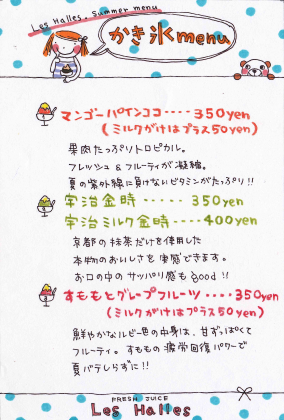 Les Halles summer menu
かき氷menu
マンゴーパインココ････350yen
(ミルクがけはプラス50yen)
果肉たっぷりトロピカル。
フレッシュ&フルーティが凝縮。
夏の紫外線に負けないビタミンがたっぷり!!
宇治金時･････350yen
宇治ミルク金時････400yen
京都の抹茶だけを使用した
本物のおいしさを実感できます。
お口の中のサッパリ感もgood!!
すももとグレープフルーツ････350yen
(ミルクがけはプラス50yen)
鮮やかなルビー色の中身は、甘ずっぱくて
フルーティ。すももの疲労回復パワーで
夏バテしらずに!!
FRESH JUICE
Les Halles